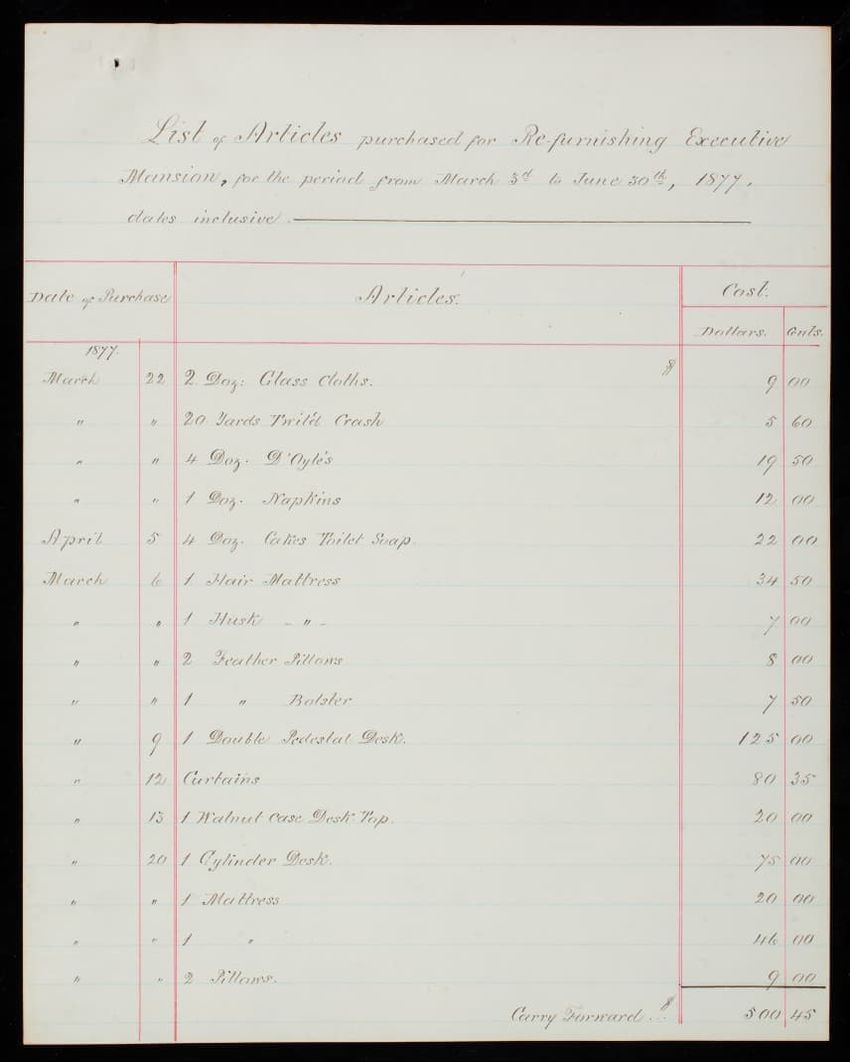 List of Articles purchased for Re-furnishing Executive
Mansion, for the period from March 3d to June 30th, 1877,
dates inclusive.
Date of Purchase Articles. Cost.
Dollars. Cnts.
1877.
March 22 2 Doz: Glass Cloths. $ 9 00
" " 20 Yards Twil'd Crash 5 60
" " 4 Doz. D'Oyle's 19 50
" " 1 Doz. Napkins 12 00
April 5 4 Doz. Cakes Toilet Soap. 22 00
March 6 1 Hair Mattress 34 50
" " 1 Husk - " - 7 00
" " 2 Feather Pillows 8 00
" " 1 " Bolster 7 50
" 9 1 Double Pedestal Desk. 125 00
" 12 Curtains 80 35
" 13 1 Walnut case Desk Top. 20 00
" 20 1 Cylinder Desk. 75 00
" " 1 Mattress 20 00
" " 1 " 46 00
" " 2 Pillows. 9 00
Carry Forward ... $ 500 45